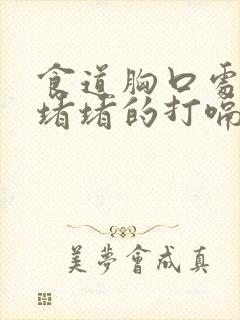 食道胸口處
堵堵的打嗝
美夢會成真